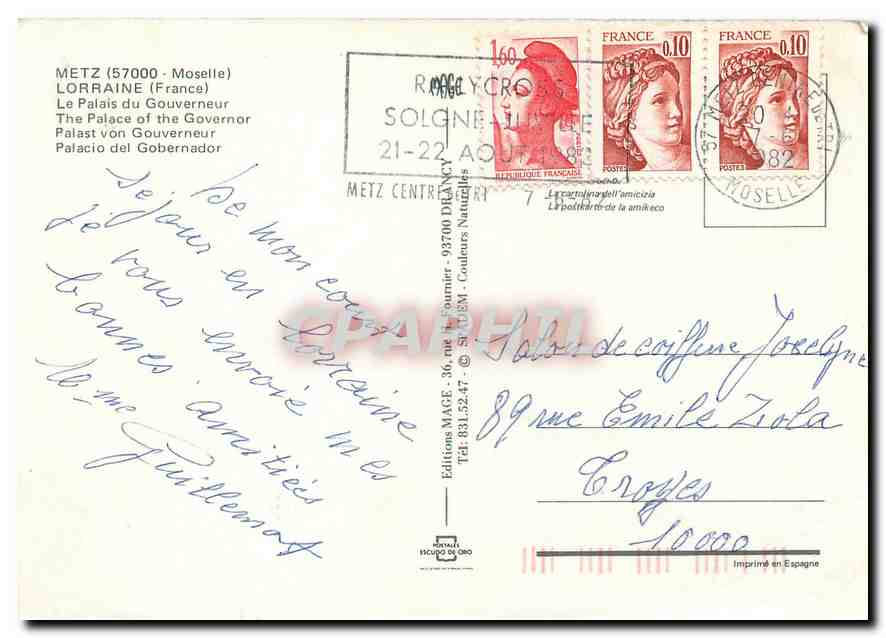 METZ (57000 - Moselle)
LORRAINE (France)
Le Palais du Gouverneur
The Palace of the Governor
Palast von Gouverneur
Palacio del Gobernador
De mon court
séjour en Lorraine
Je vous envoie mes
bonnes amitiés
Mme Guillemot
1,60
REPUBLIQUE FRANÇAISE
FRANCE
0,10
POSTES
FRANCE
0,10
POSTES
RALLYCROSS
21-22 AOUT
METZ CENTRE DE TRI
7-8-82
1982
MOSELLE
La cartolina dell'amicizia
La postkarto de la amikeco
Editions MAGE - 36, rue H. Fournier - 93700 DRANCY
Tél: 831.52.47 - © SIADEM - Couleurs Naturelles
CPAPHIL
Salon de coiffure Jocelyne
89 rue Emile Zola
Troyes
10000
POSTALES
ESCUDO DE ORO
Imprimé en Espagne